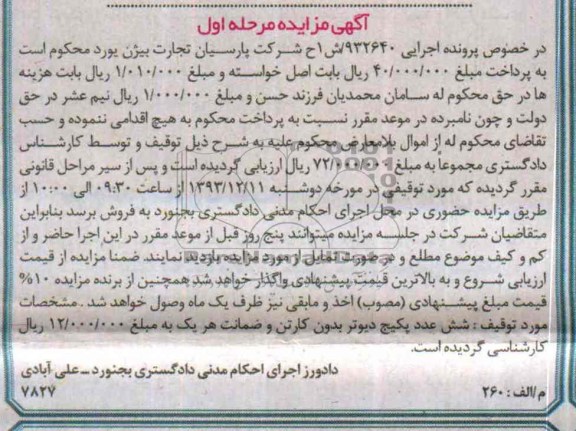 آگهی مزایده مرحله اول
در خصوص پرونده اجرایی ۹۳۲۶۴۰/ش۱ح شرکت پارسیان تجارت بیژن یورد محکوم است
به پرداخت مبلغ ۴۰/۰۰۰/۰۰۰ ریال بابت اصل خواسته و مبلغ ۱/۰۱۰/۰۰۰ ریال بابت هزینه
ها در حق محکوم له سامان محمدیان فرزند حسن و مبلغ ۱/۰۰۰/۰۰۰ ریال نیم عشر در حق
دولت و چون نامبرده در موعد مقرر نسبت به پرداخت محکوم به هیچ اقدامی ننموده و حسب
تقاضای محکوم له از اموال بلامعارض محکوم علیه به شرح ذیل توقیف و توسط کارشناس
دادگستری مجموعاً به مبلغ ۷۲/۰۰۰/۰۰۰ ریال ارزیابی گردیده است و پس از سیر مراحل قانونی
مقرر گردیده که مورد توقیفی در مورخه دوشنبه ۱۳۹۳/۱۲/۱۱ از ساعت ۰۹:۳۰ الی ۱۰:۰۰ از
طریق مزایده حضوری در محل اجرای احکام مدنی دادگستری بجنورد به فروش برسد بنابراین
متقاضیان شرکت در جلسه مزایده میتوانند پنج روز قبل از موعد مقرر در این اجرا حاضر و از
کم و کیف موضوع مطلع و در صورت تمایل از مورد مزایده بازدید نمایند. ضمنا مزایده از قیمت
ارزیابی شروع و به بالاترین قیمت پیشنهادی واگذار خواهد شد همچنین از برنده مزایده ۱۰%
قیمت مبلغ پیشنهادی (مصوب) اخذ و مابقی نیز ظرف یک ماه وصول خواهد شد. مشخصات
مورد توقیف: شش عدد پکیج دیوتر بدون کارتن و ضمانت هر یک به مبلغ ۱۲/۰۰۰/۰۰۰ ریال
کارشناسی گردیده است.
دادورز اجرای احکام مدنی دادگستری بجنورد ـ علی آبادی
م/الف: ۲۶۰
۷۸۲۷